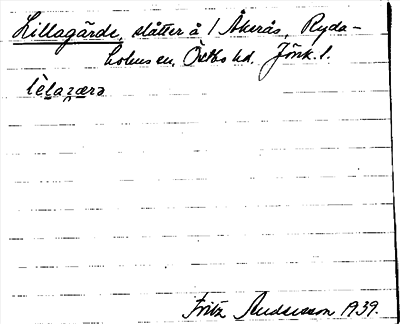 Lillagärde, slåtter å 1 Åkerås, Ryda-
holms sn, Östbo hd. Jönk. l.
lèlagæra
Fritz Andersson 1939.